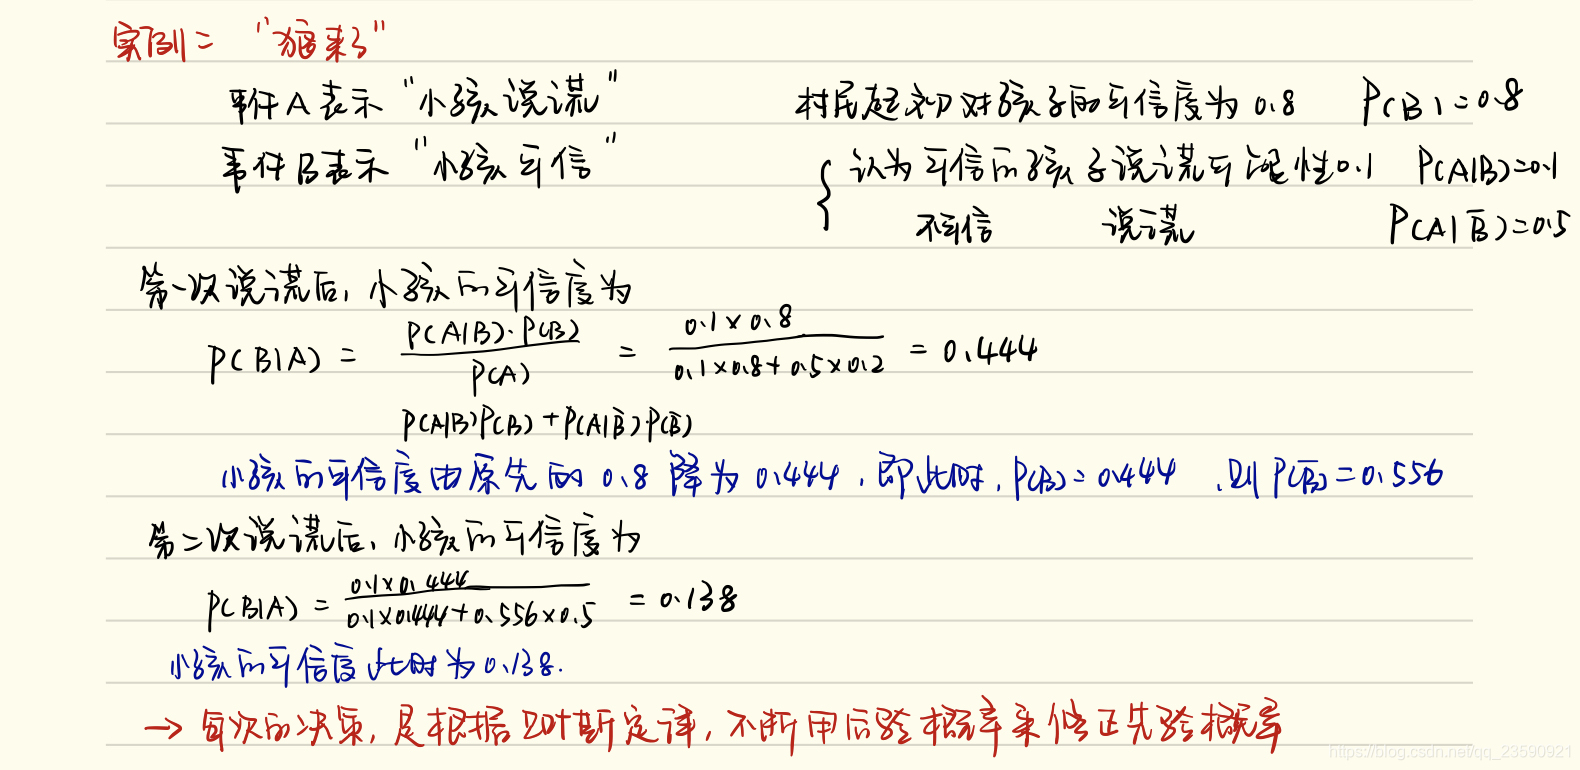 实例："狼来了"
事件A表示"小孩说谎"
村民起初对孩子的可信度为0.8 P(B)=0.8
事件B表示"小孩可信"
认为可信的孩子说谎可能性0.1 P(A|B)=0.1
不可信 说谎 P(A|B̅)=0.5
第一次说谎后,小孩的可信度为
P(B|A) = P(A|B)·P(B) / P(A) = 0.1×0.8 / 0.1×0.8+0.5×0.2 = 0.444
P(A|B)P(B)+P(A|B̅)·P(B̅)
小孩的可信度由原先的0.8降为0.444,即此时,P(B)=0.444,则P(B̅)=0.556
第二次说谎后,小孩的可信度为
P(B|A) = 0.1×0.444 / 0.1×0.444+0.556×0.5 = 0.138
小孩的可信度此时为0.138.
→ 每次的决策,是根据贝叶斯定律,不断用后验概率来修正先验概率
https://blog.csdn.net/qq_23590921